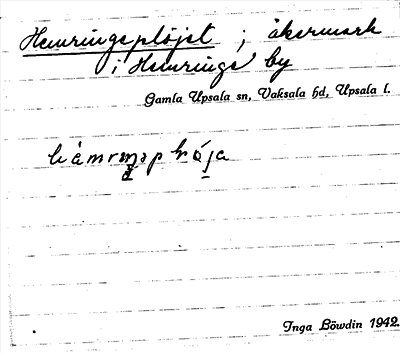 Hemringsplöjet ; åkermark
i Hemringe by
Gamla Upsala sn, Vaksala hd, Upsala l.
Inga Löwdin 1942.